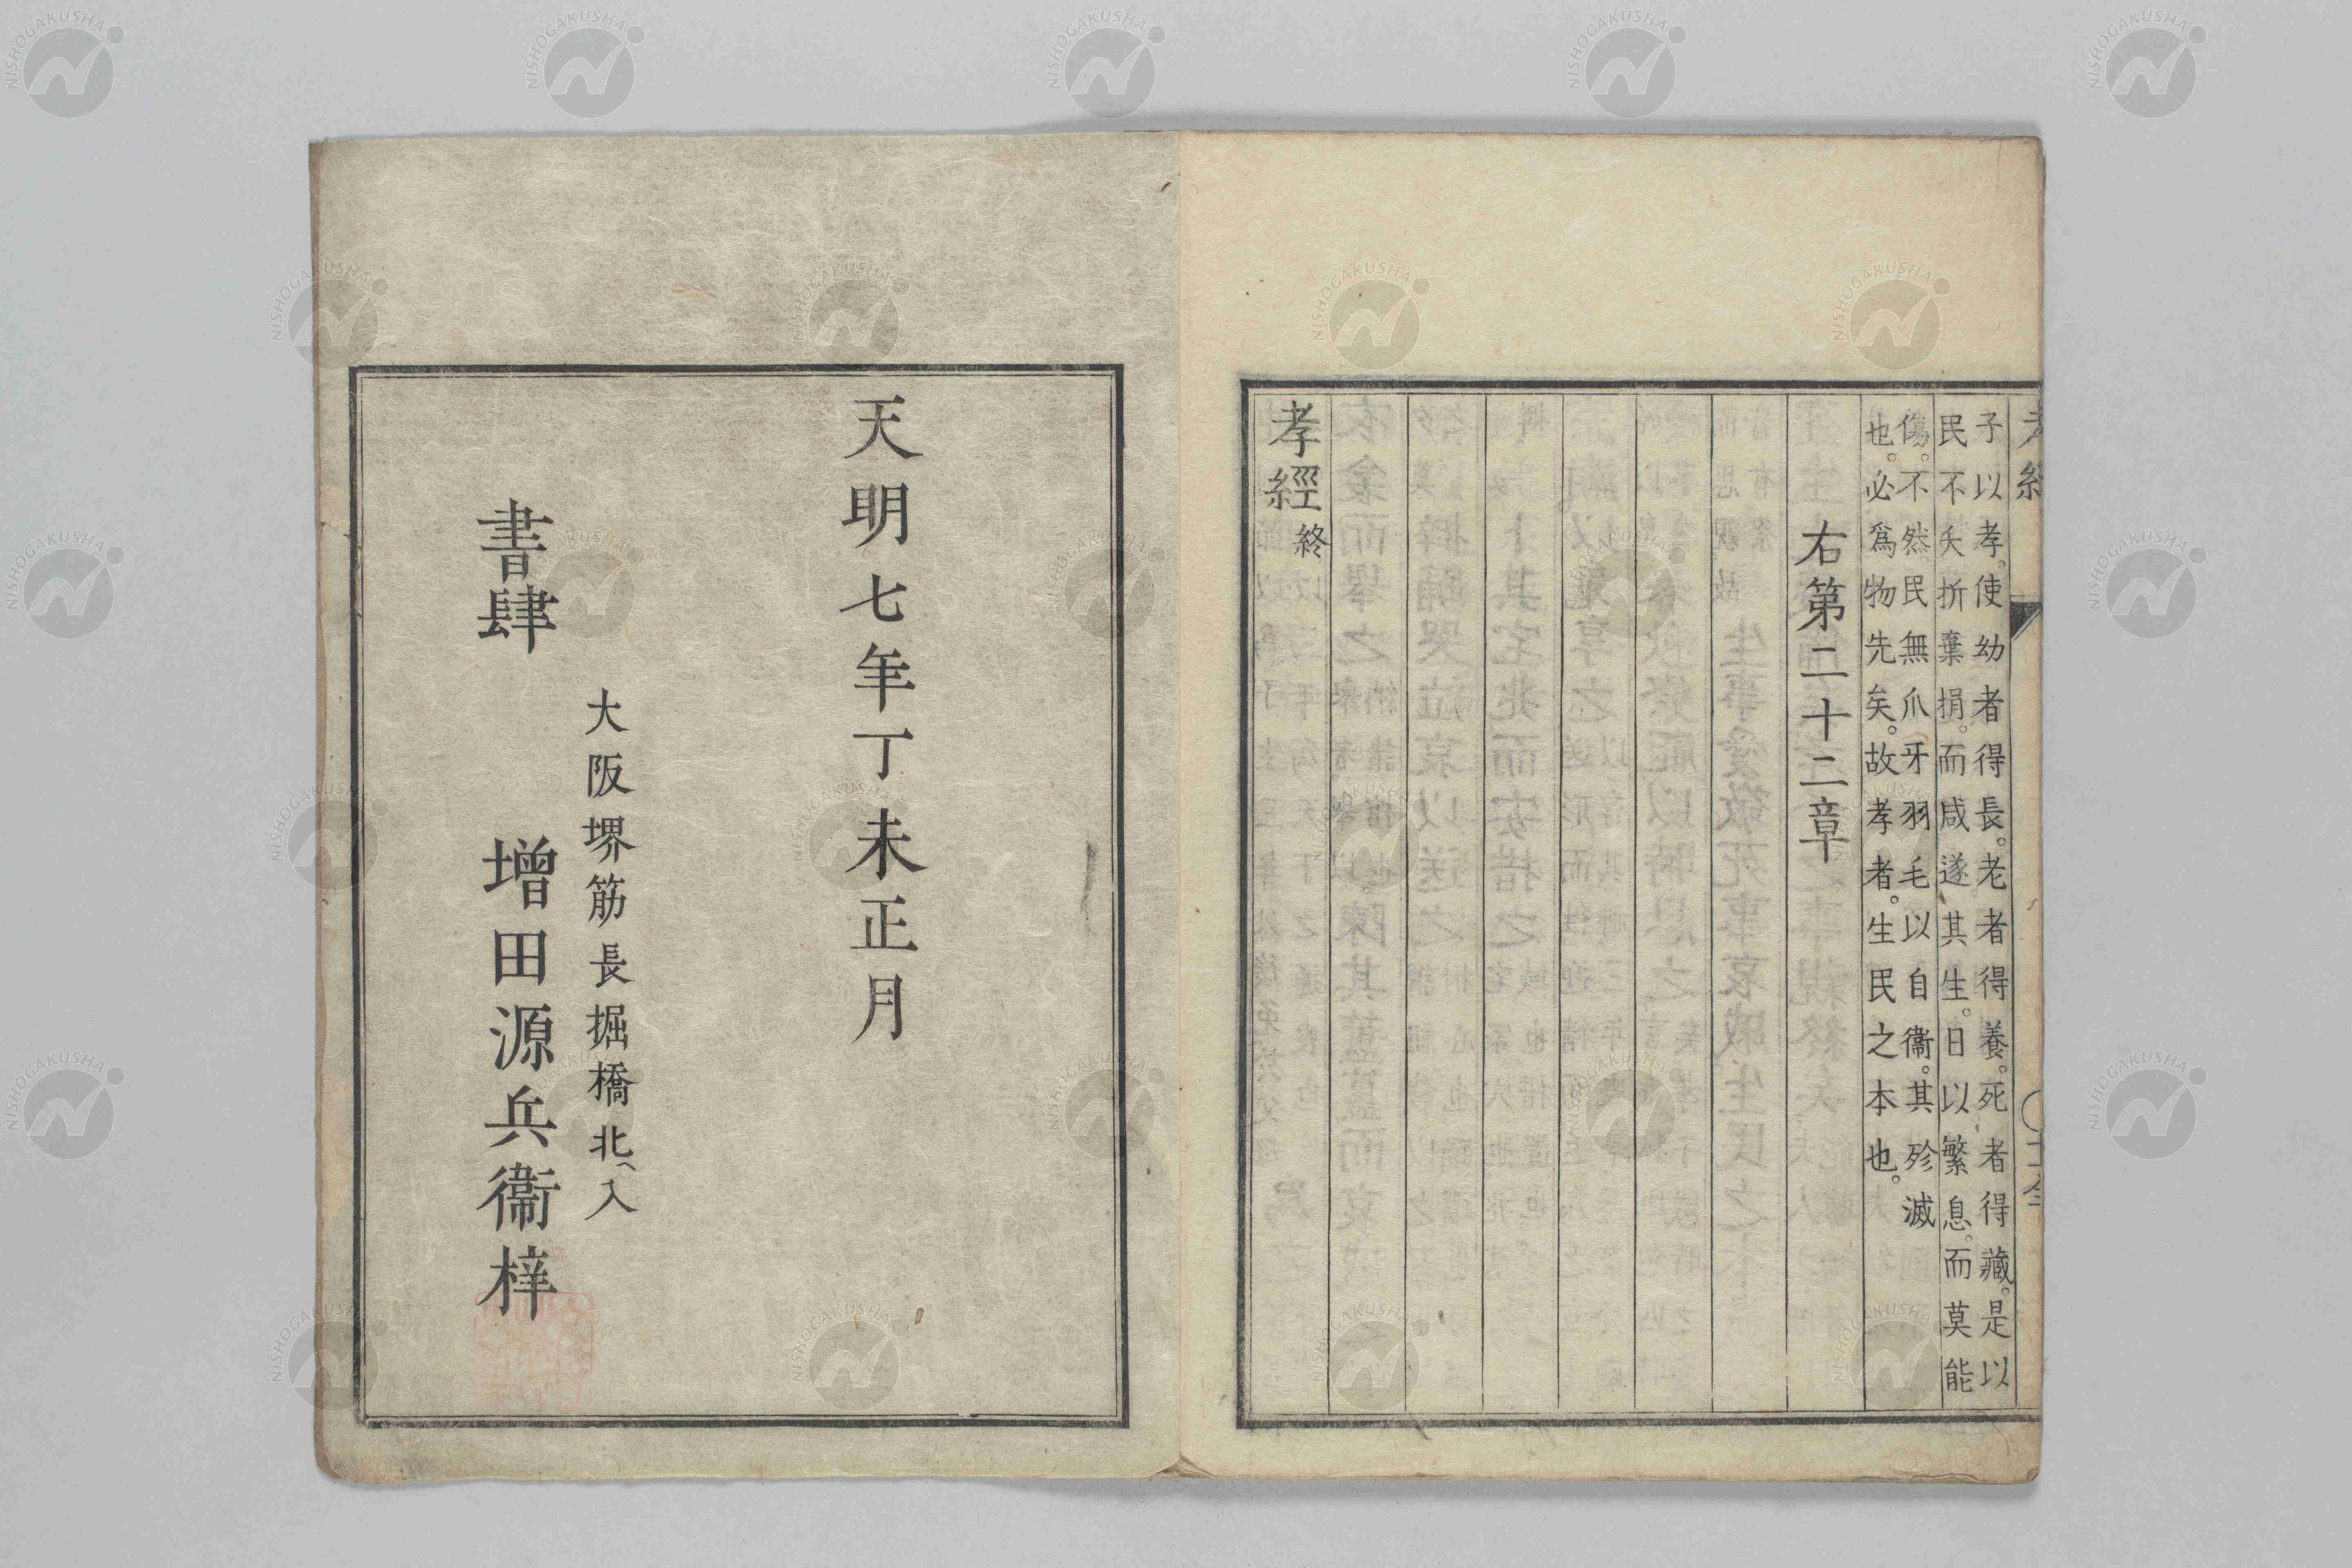 子以孝。使幼者得長。老者得養。死者得藏。是以
民不夭折棄捐。而咸遂其生。日以繁息。而莫能
傷。不然民無爪牙羽毛以自衞。其殄滅
也。必爲物先矣。故孝者。生民之本也。
右第二十二章
孝經終
天明七年丁未正月
大阪堺筋長堀橋北ヘ入
書肆 增田源兵衞梓
NISHOGAKUSHA